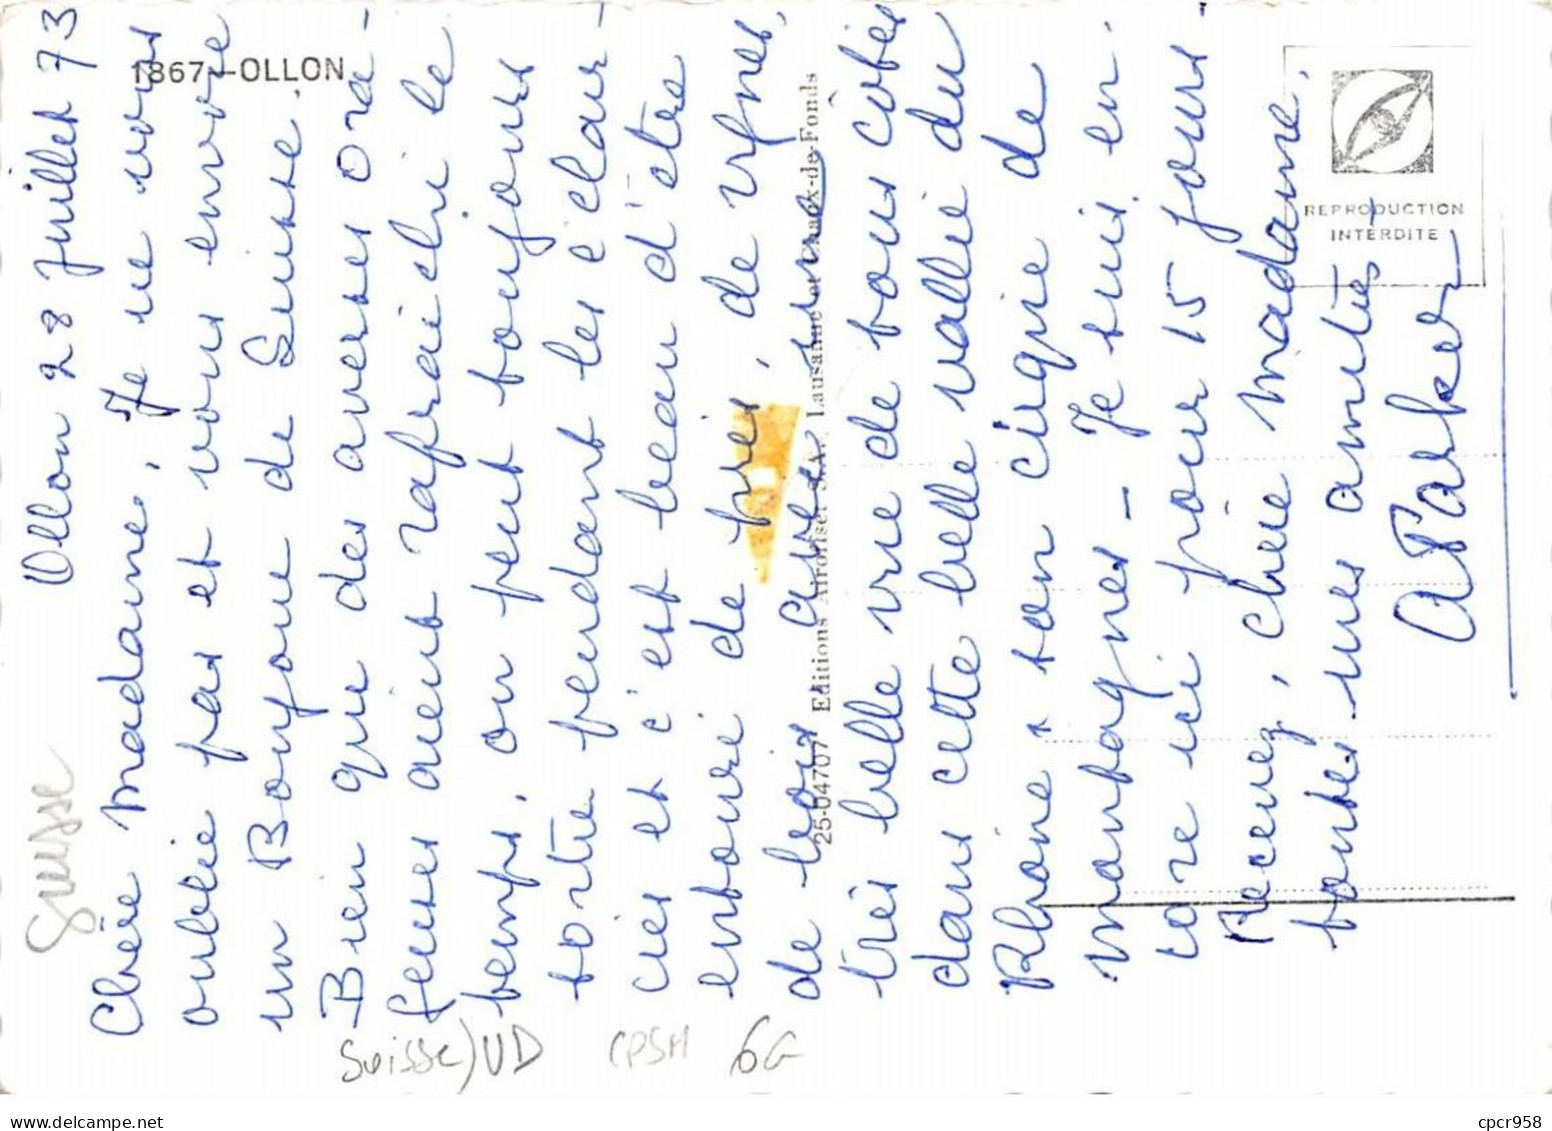 1867 - OLLON
Ollon 28 Juillet 73
Chère Madame, Je ne vous
oublie pas et vous envoie
un Bonjour de Suisse.
Bien que des averses ora-
geuses aient rafraichi le
temps, on peut toujours
sortir pendant les éclair-
cies et c'est beau d'être
entouré de prés, de vignes,
de bois avec une
très belle vue de tous côtés
dans cette belle vallée du
Rhône, son cirque de
montagnes - Je suis en-
core ici pour 15 jours -
Recevez, chère Madame,
toutes mes amitiés
A Parker
25-04707 Editions Airdisel S.A., Lausanne et Chaux-de-Fonds
REPRODUCTION
INTERDITE
Suisse
Suisse) VD
CPSM
6G
cpcr958